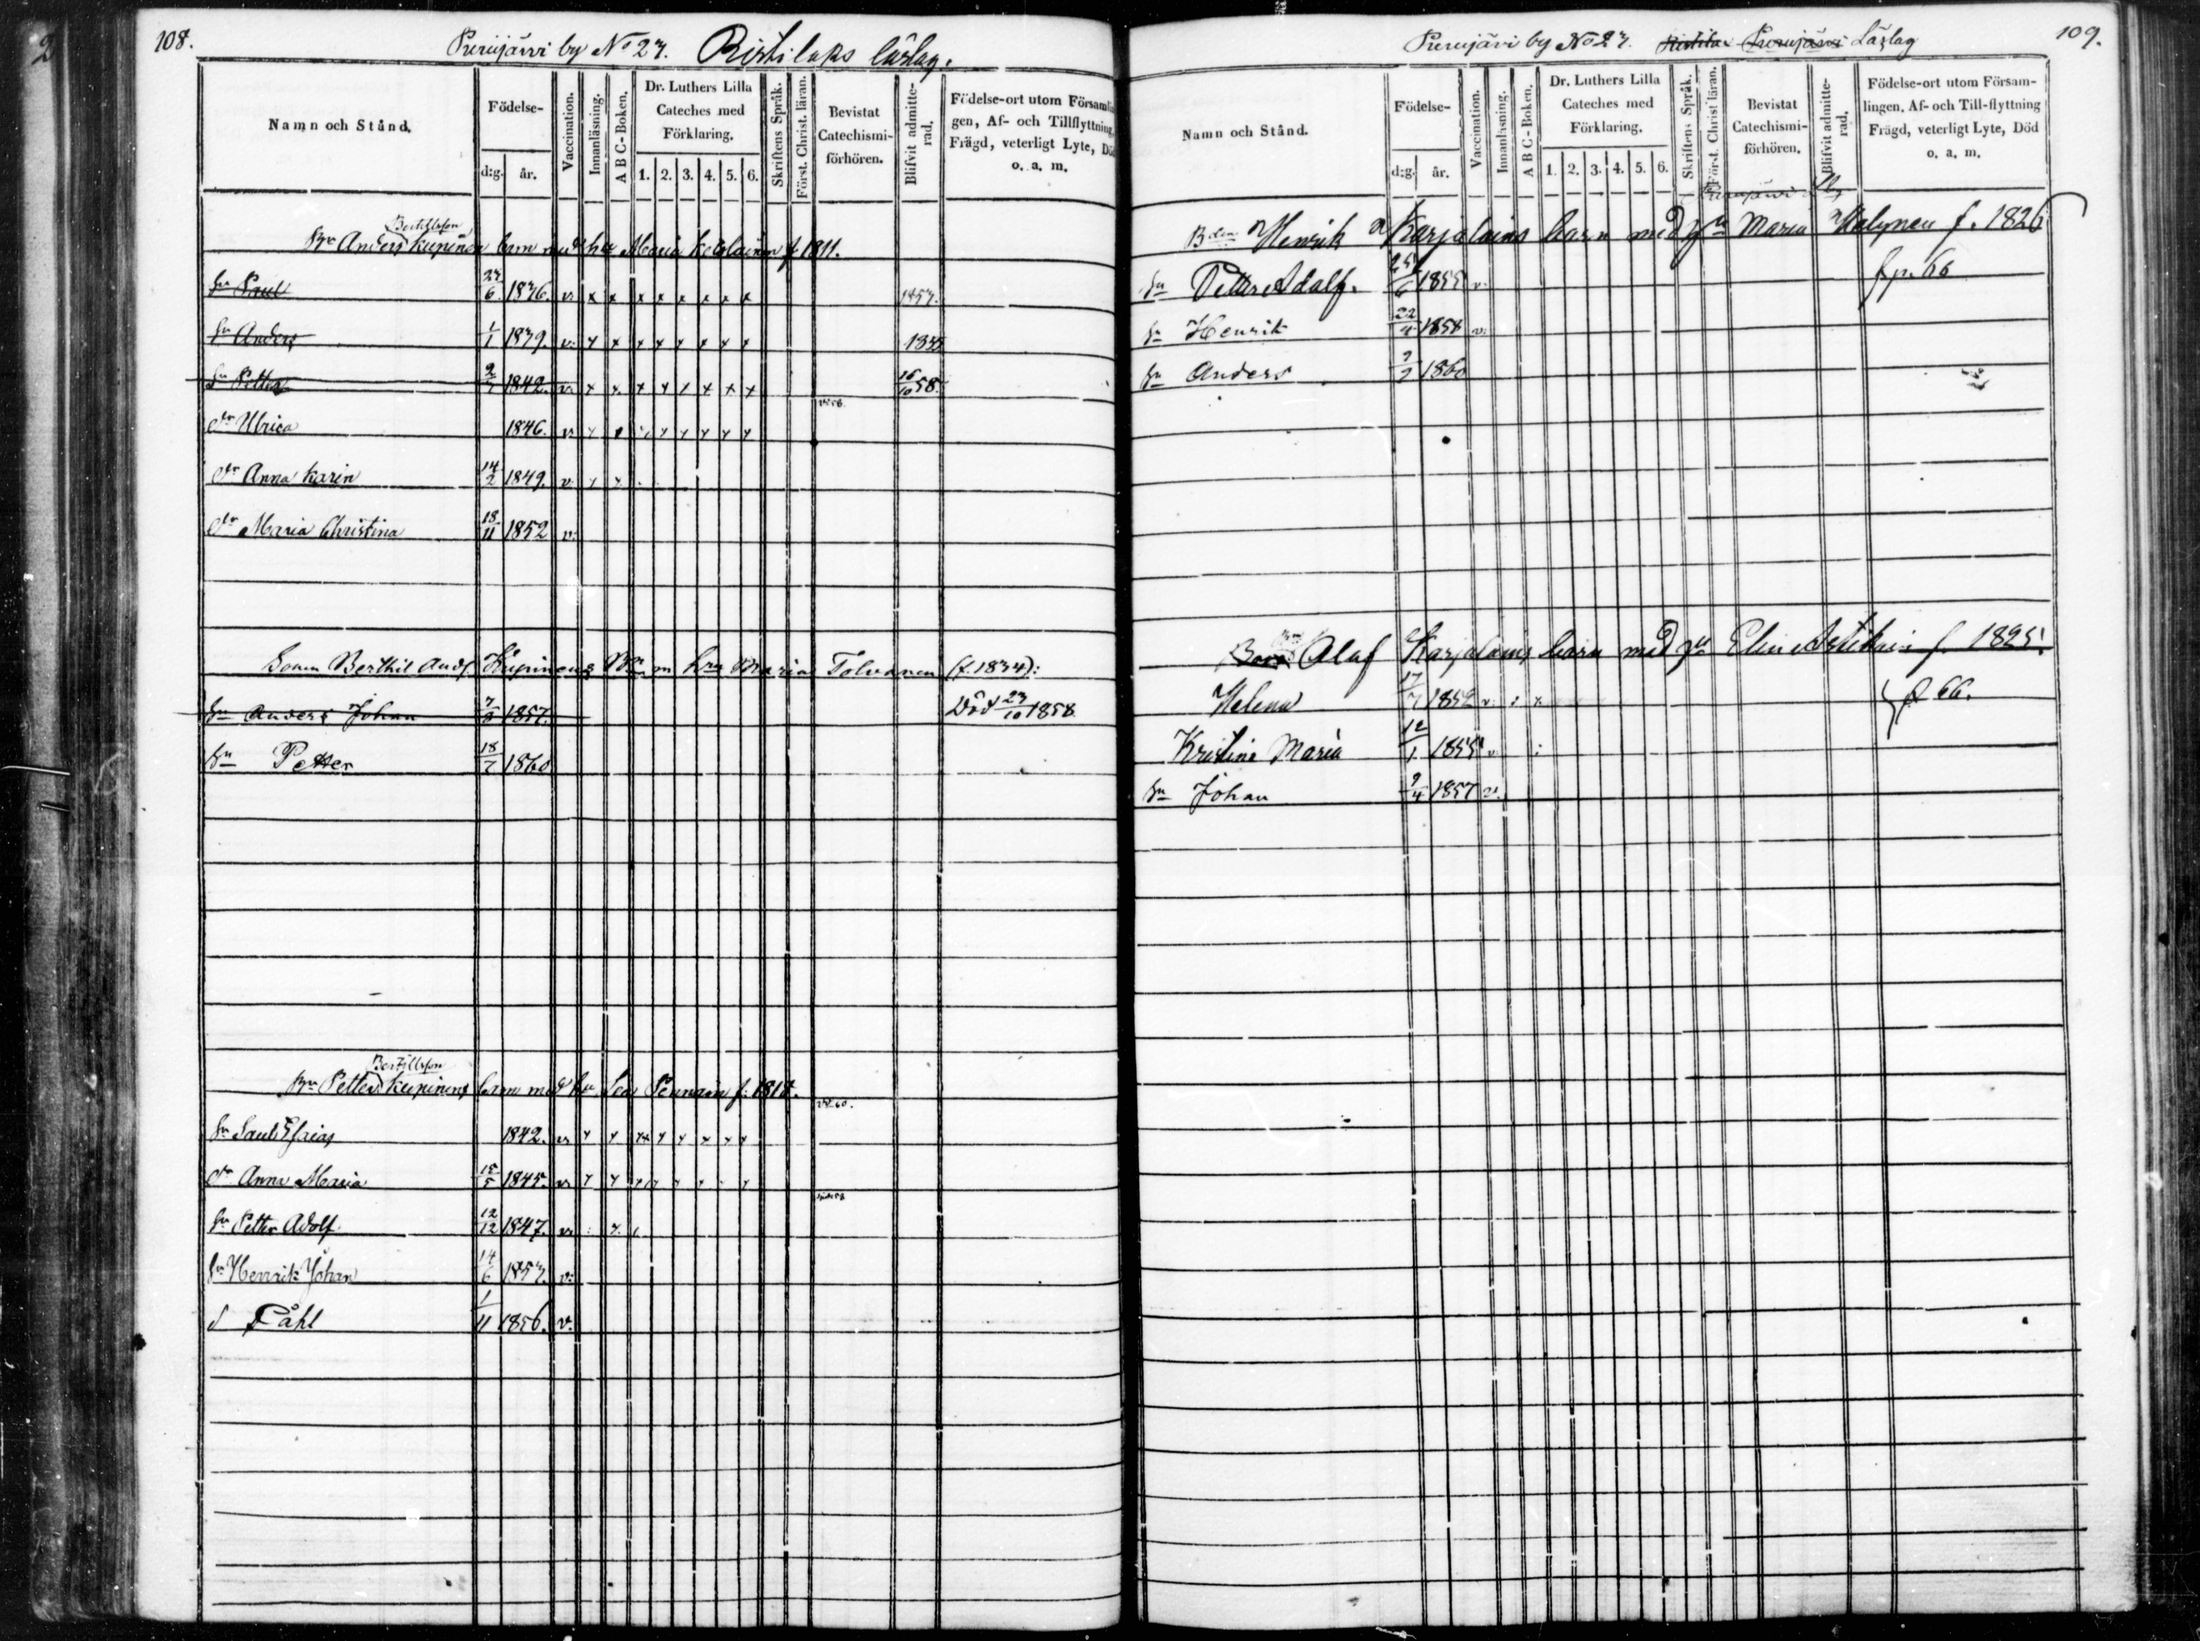 108.
Purujärvi by No 27. Ristilaks läslag.
Namn och Stånd.
Födelse-
d:g. år.
Vaccination.
Innanläsning.
A B C-Boken.
Dr. Luthers Lilla Cateches med Förklaring.
1. 2. 3. 4. 5. 6.
Skriftens Språk.
Först. Christ. läran.
Bevistat Catechismi-förhören.
Blifvit admitterad.
Födelse-ort utom Församlingen, Af- och Tillflyttning, Frägd, veterligt Lyte, Död o. a. m.
Bertillsson
Bn Anders Kupinen barn med hu Maria f. 1811.
Sn Paul 27/6 1836. v x x x x x x x x 1857.
Sn Anders 1/1 1839. v. x x x x x x x x
Sn Petter 1842. v x x x x x x x x 16/10 58.
Dr Ulrica 1846. v x x x x x x x
Dr Anna Karin 14/2 1849. v. x x
Dr Maria Christina 18/11 1852 v.
Sonen Berthil Ands. Kupinens Bn m hru Maria Tolvanen (f. 1834):
Sn Anders Johan 1857. Död 23/10 1858
Sn Petter 18/7 1860
Bertillsson
Bn Petter Kupinens barn med hu Lea f. 1818.
Sn Saul Esaias 1842. v x x x x x x x x
Dr Anna Maria 15/5 1845. v x x x x x x
Sn Petter Adolf 12/12 1847. v x
Sn Henrik Johan 14/6 1853. v:
S Påhl 1/11 1856. v.
109.
Purujärvi by No 27. Ristilax Purujärvi Läslag
Namn och Stånd.
Födelse-
d:g. år.
Vaccination.
Innanläsning.
A B C-Boken.
Dr. Luthers Lilla Cateches med Förklaring.
1. 2. 3. 4. 5. 6.
Skriftens Språk.
Först. Christ läran.
Bevistat Catechismi-förhören.
Blifvit admitterad.
Födelse-ort utom Församlingen, Af- och Till-flyttning Frägd, veterligt Lyte, Död o. a. m.
Purujärvi
Bden Henrik Karjalains barn med hu Maria f. 1826
Sn Petter Adolf. 25/6 1855 v. p. 66
Sn Henrik 22/4 1858 v.
Sn Anders 1860
Olaf Karjalains barn med hu Elin f. 1825.
Helena 17/7 1852 v. x p 66.
Kristina Maria 12/1 1855 v
Sn Johan 9/4 1857 v.